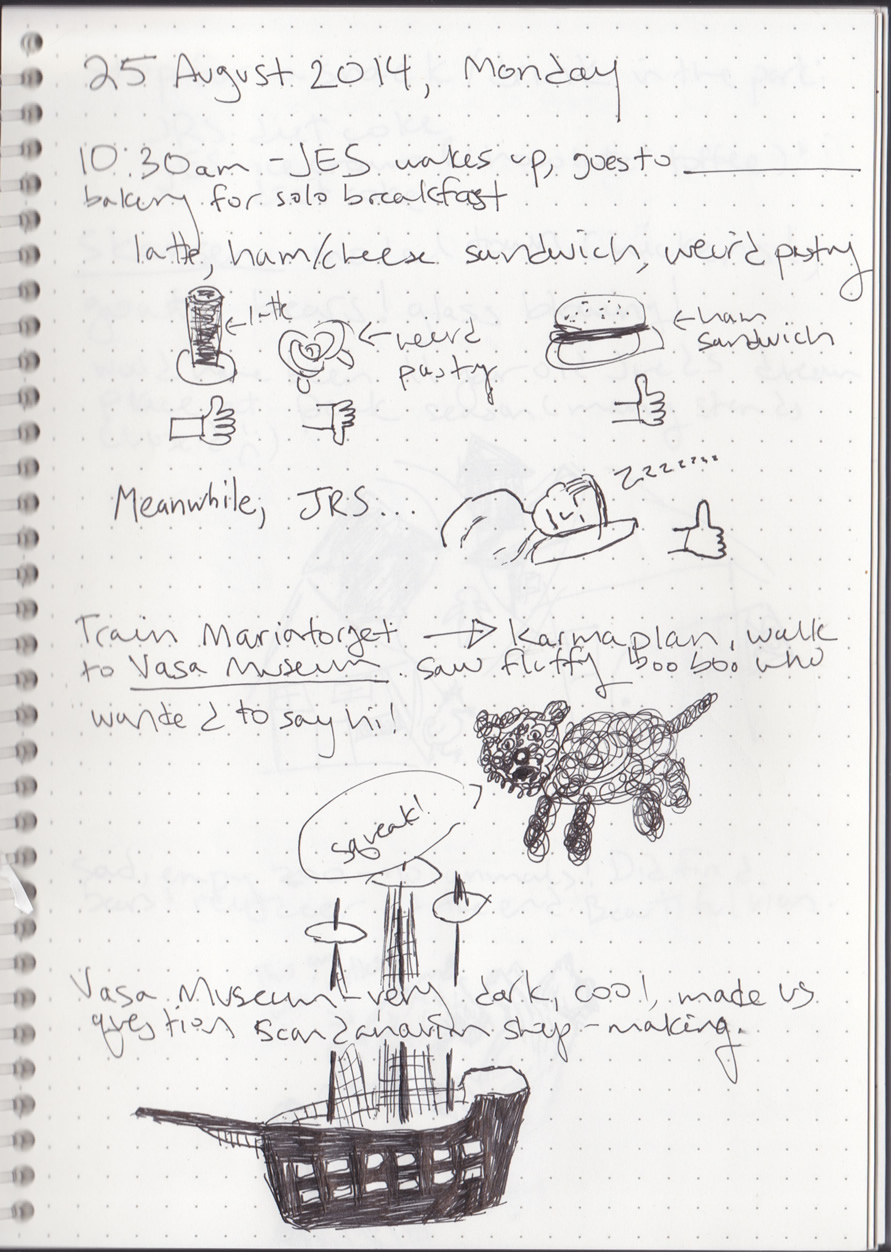 25 August 2014, Monday
10:30am - JES wakes up, goes to ________
bakery for solo breakfast
latte, ham/cheese sandwich, weird pastry
← latte
← weird
pastry
← ham
sandwich
Meanwhile, JRS...
zzzzzzz
Train Mariatorget → Karmaplan, walk
to Vasa Museum. saw fluffy boo boo who
wanted to say hi!
squeak!
Vasa Museum - very dark, cool, made us
question Scandanavian ship-making.